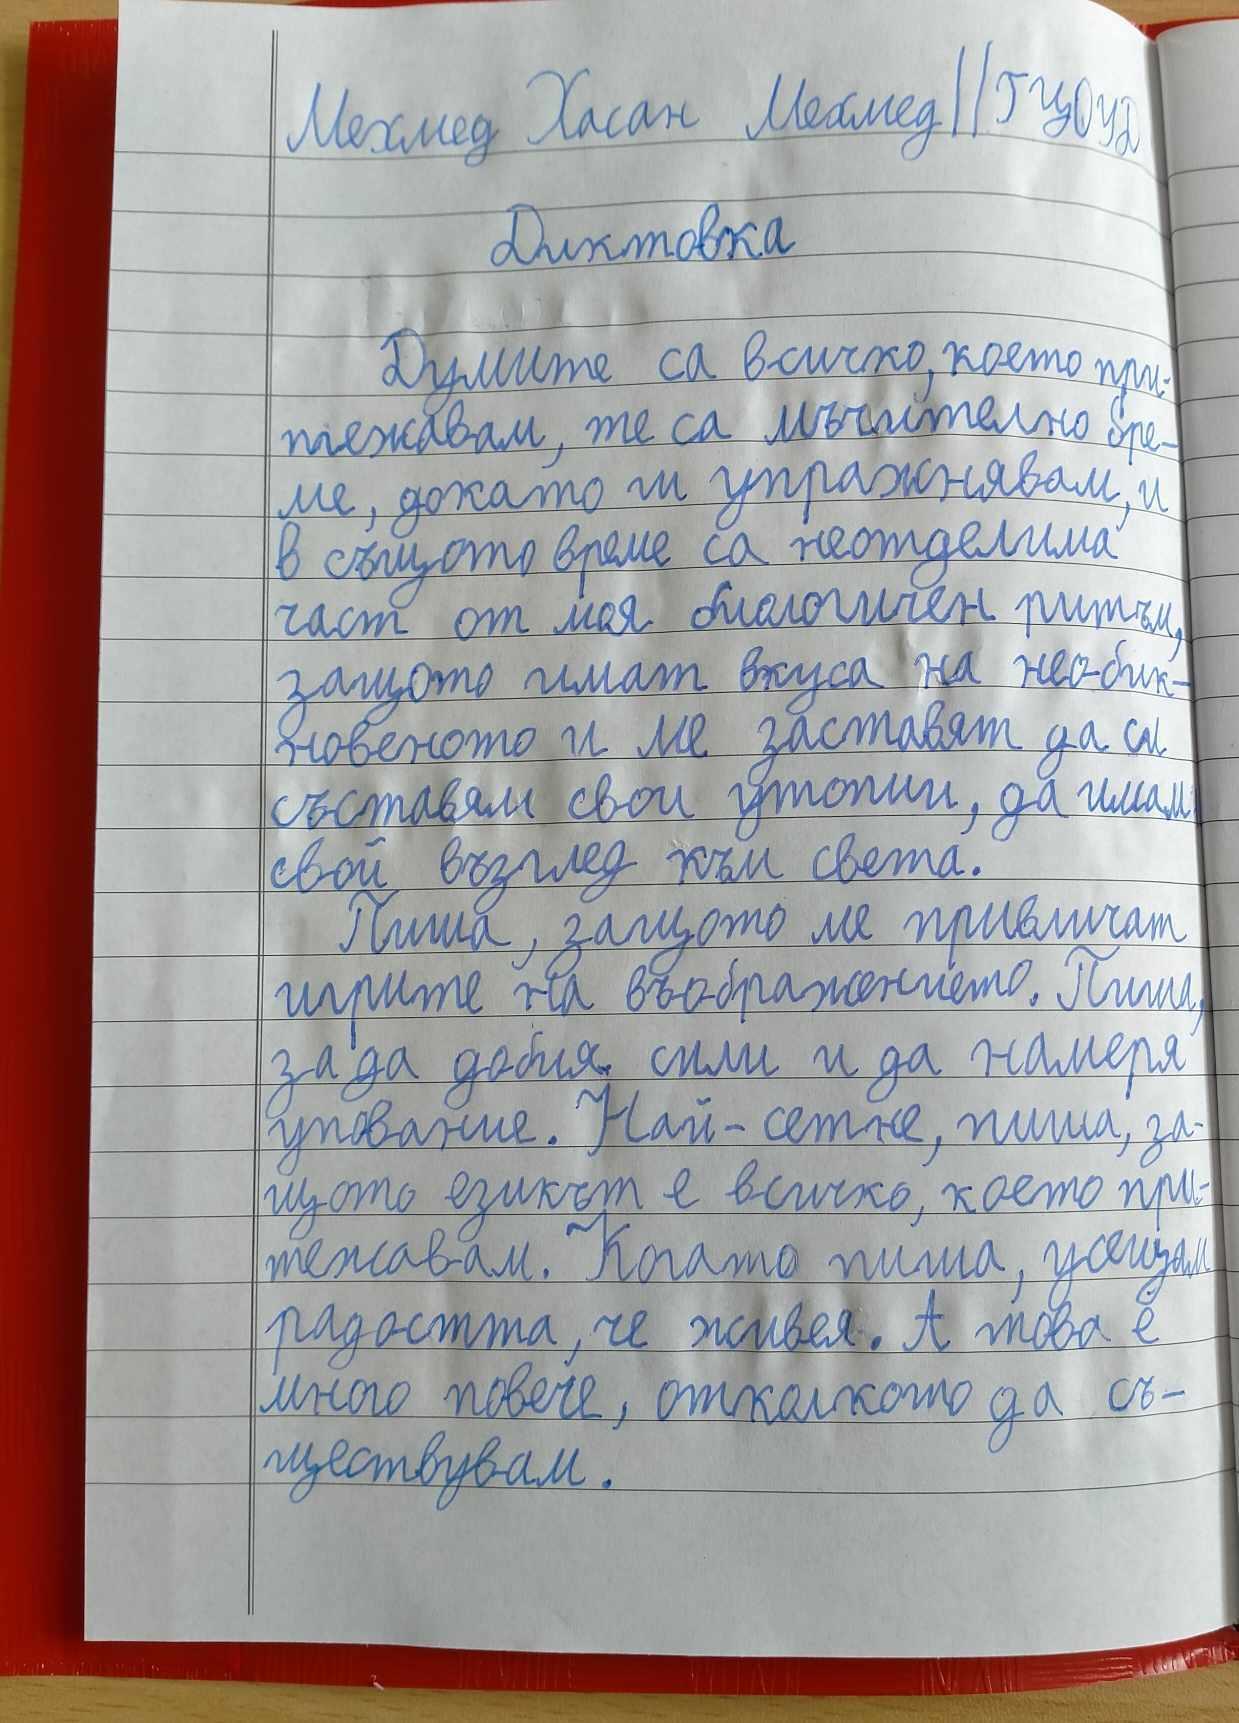 Мехмед Хасан Мехмед || ГЦОУД
Диктовка
Думите са всичко, което при-
тежавам, те са мъчително бре-
ме, докато ги упражнявам, и
в същото време са неотделима
част от моя биологичен ритъм,
защото имат вкуса на необик-
новеното и ме заставят да си
съставям свои утопии, да имам
свой възглед към света.
Пиша, защото ме привличат
игрите на въображението. Пиша,
за да добия сили и да намеря
упование. Най-сетне, пиша, за-
щото езикът е всичко, което при-
тежавам. Когато пиша, усещам
радостта, че живея. А това е
много повече, отколкото да съ-
ществувам.